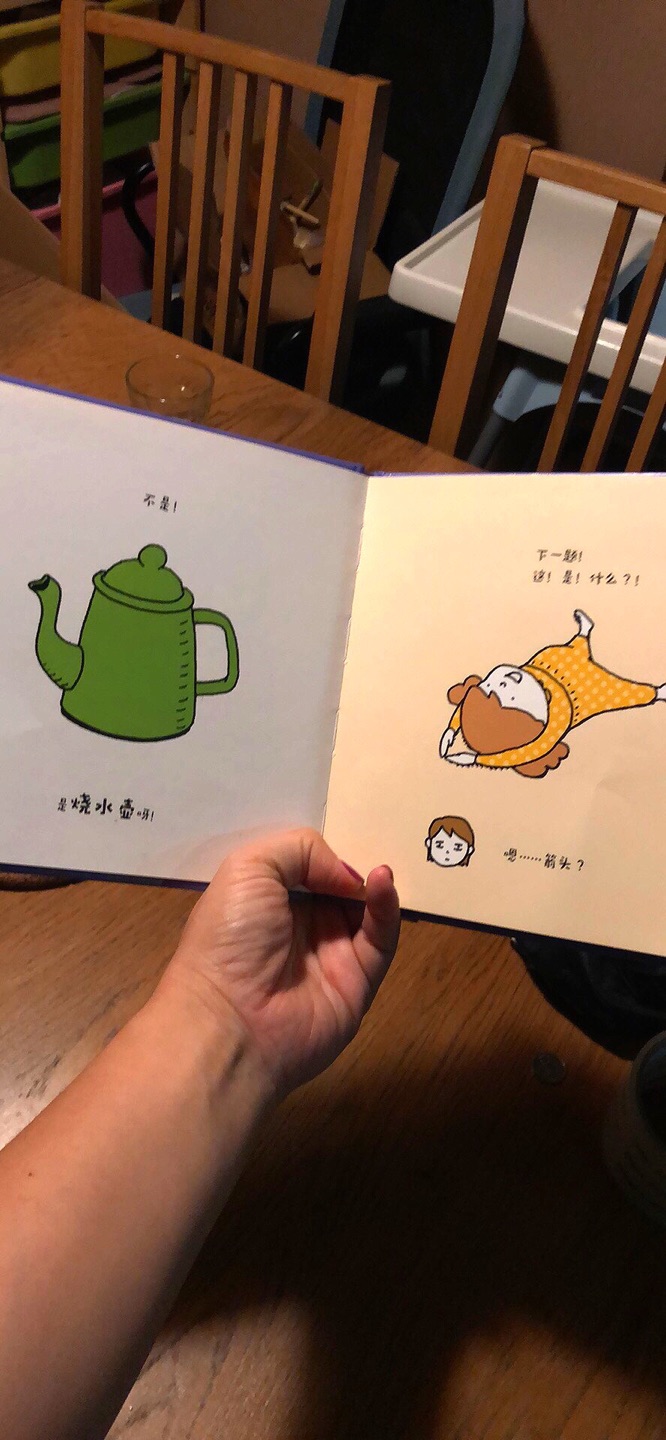 不是！
是烧水壶呀！
下一题！
这！是！什么？！
嗯……箭头？